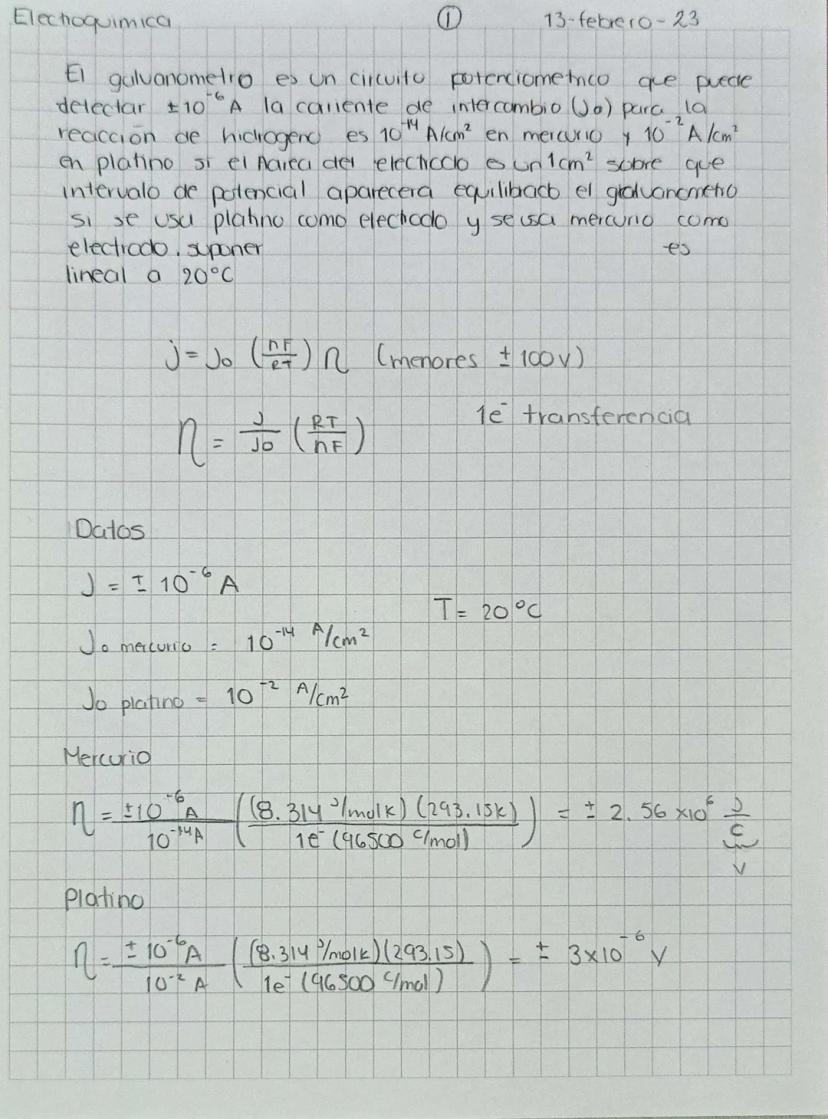 Electroquimica ① 13-febrero-23
El galvanometro es un circuito potenciometrico que puede
detectar ±10⁻⁶ A la corriente de intercambio (Jo) para la
reacción de hidrogeno es 10⁻¹⁴ A/cm² en mercurio y 10⁻² A/cm²
en platino si el Aarea del electrodo es un 1cm² sobre que
intervalo de potencial aparecera equilibado el galvanometro
si se usa platino como electrodo y se usa mercurio como
electrodo. suponer es
lineal a 20°C
j = Jo (nF/RT) η (menores ±100v)
η = J/Jo (RT/nF) 1e⁻ transferencia
Datos
J = ± 10⁻⁶ A
T = 20°C
Jo mercurio = 10⁻¹⁴ A/cm²
Jo platino = 10⁻² A/cm²
Mercurio
η = ±10⁻⁶ A / 10⁻¹⁴ A ((8.314 J/molk) (293.15k) / 1e⁻ (96500 C/mol)) = ± 2.56 x10⁶ J/C
V
Platino
η = ± 10⁻⁶ A / 10⁻² A ((8.314 J/molk)(293.15) / 1e⁻ (96500 C/mol)) = ± 3x10⁻⁶ V